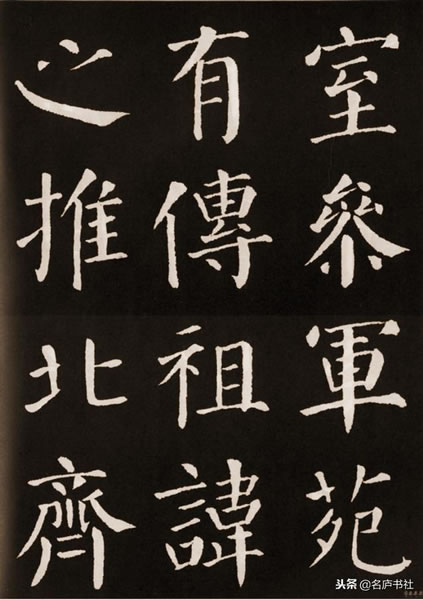 室參軍苑
有傳祖諱
之推北齊
头条@名庐书社